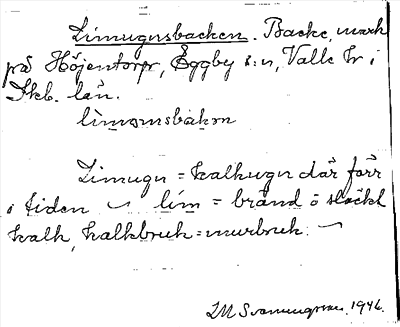 Limugnsbacken. Backe, mark
på Höjentorp, Eggby s:n, Valle hr i
Skb. län.
limomsbakɐn
Limugn = kalkugn där förr
i tiden ~ lim = bränd o släckt
kalk, kalkbruk = murbruk. ~
1946.